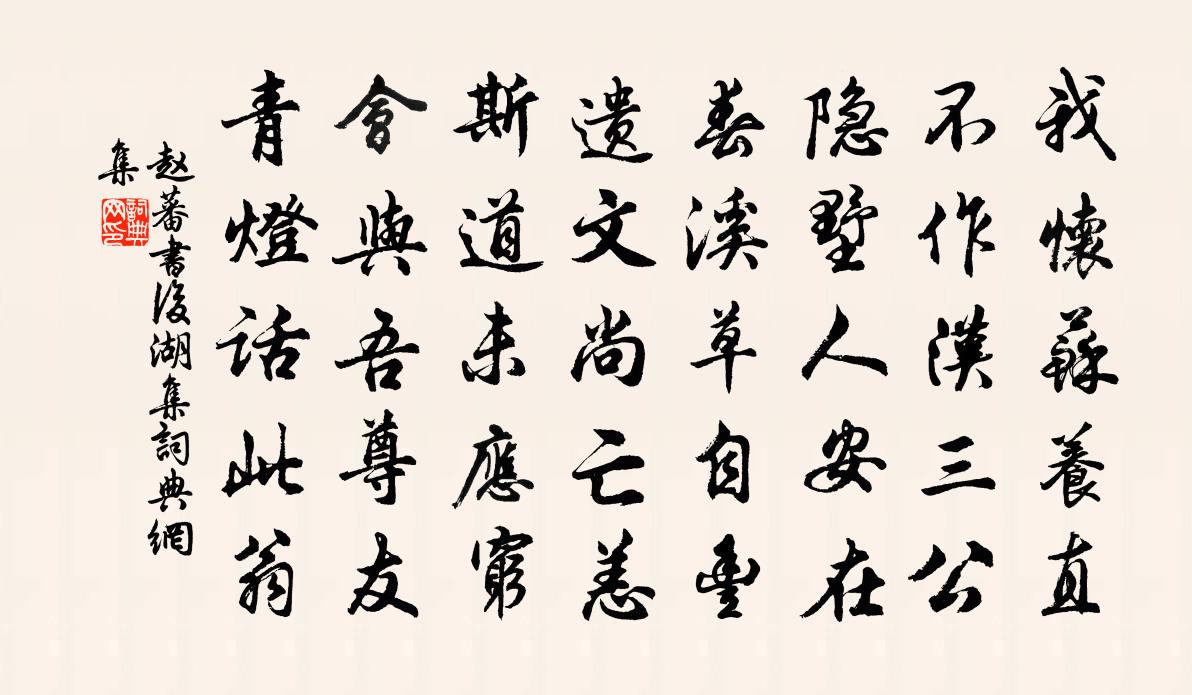 我懷蘇養直
不作漢三公
隐墅人安在
春溪草自豐
遗文尚亡恙
斯道未應窮
會與吾尊友
青燈話此翁
赵蕃書後湖集詞典網
集
詞典
网印